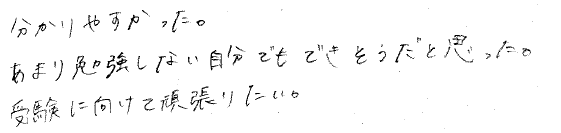 分かりやすかった。
あまり勉強しない自分でもできそうだと思った。
受験に向けて頑張りたい。